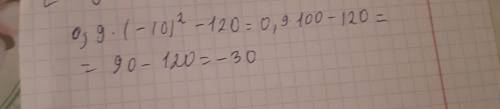 0,9·(-10)² -120=0,9 100-120=
= 90-120=-30